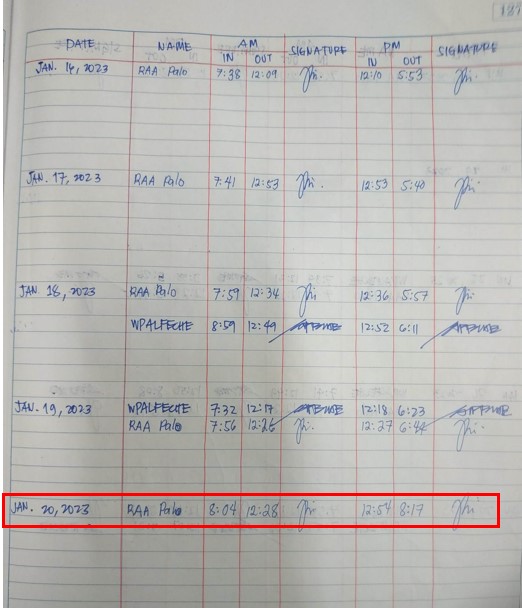 DATE NAME AM SIGNATURE PM SIGNATURE
IN OUT IN OUT
JAN. 16, 2023 RAA Palo 7:38 12:09 12:10 5:53
JAN. 17, 2023 RAA Palo 7:41 12:53 12:53 5:40
JAN. 18, 2023 RAA Palo 7:59 12:34 12:36 5:57
WPALFECHE 8:59 12:49 12:52 6:11
JAN. 19, 2023 WPALFECHE 7:32 12:17 12:18 6:23
RAA Palo 7:56 12:26 12:27 6:44
JAN. 20, 2023 RAA Palo 8:04 12:28 12:54 8:17